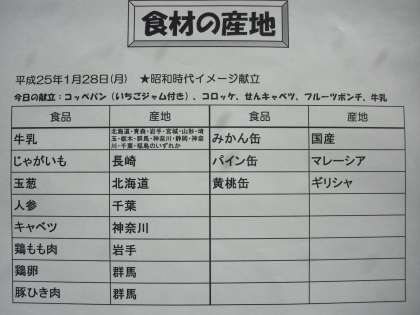 食材の産地
平成25年1月28日(月) ★昭和時代イメージ献立
今日の献立:コッペパン(いちごジャム付き)、コロッケ、せんキャベツ、フルーツポンチ、牛乳
食品 産地 食品 産地
牛乳 北海道・青森・岩手・宮城・山形・埼玉・栃木・群馬・神奈川・静岡・神奈川・千葉・福島のいずれか みかん缶 国産
じゃがいも 長崎 パイン缶 マレーシア
玉葱 北海道 黄桃缶 ギリシャ
人参 千葉
キャベツ 神奈川
鶏もも肉 岩手
鶏卵 群馬
豚ひき肉 群馬